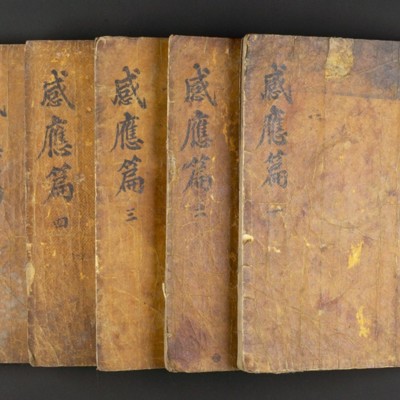 感應篇 一
感應篇 二
感應篇 三
感應篇 四